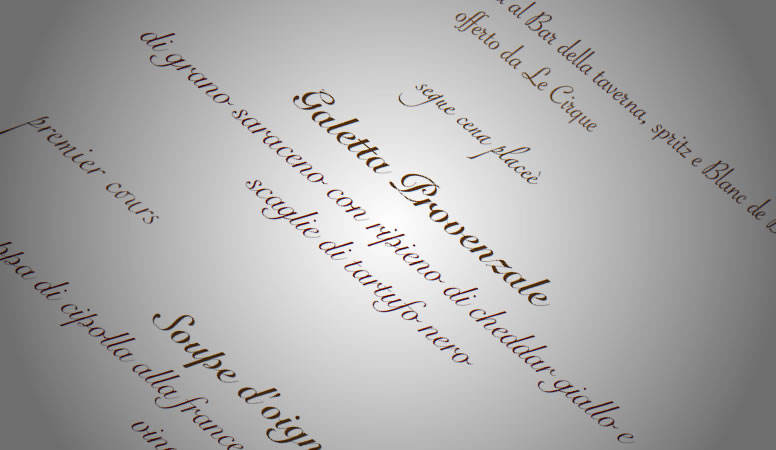 al Bar della taverna, spritz e Blanc de
offerto da Le Cirque
segue cena placeè
Galetta Provenzale
di grano saraceno con ripieno di cheddar giallo e
scaglie di tartufo nero
premier cours
Soupe d'oign
ppa di cipolla alla france